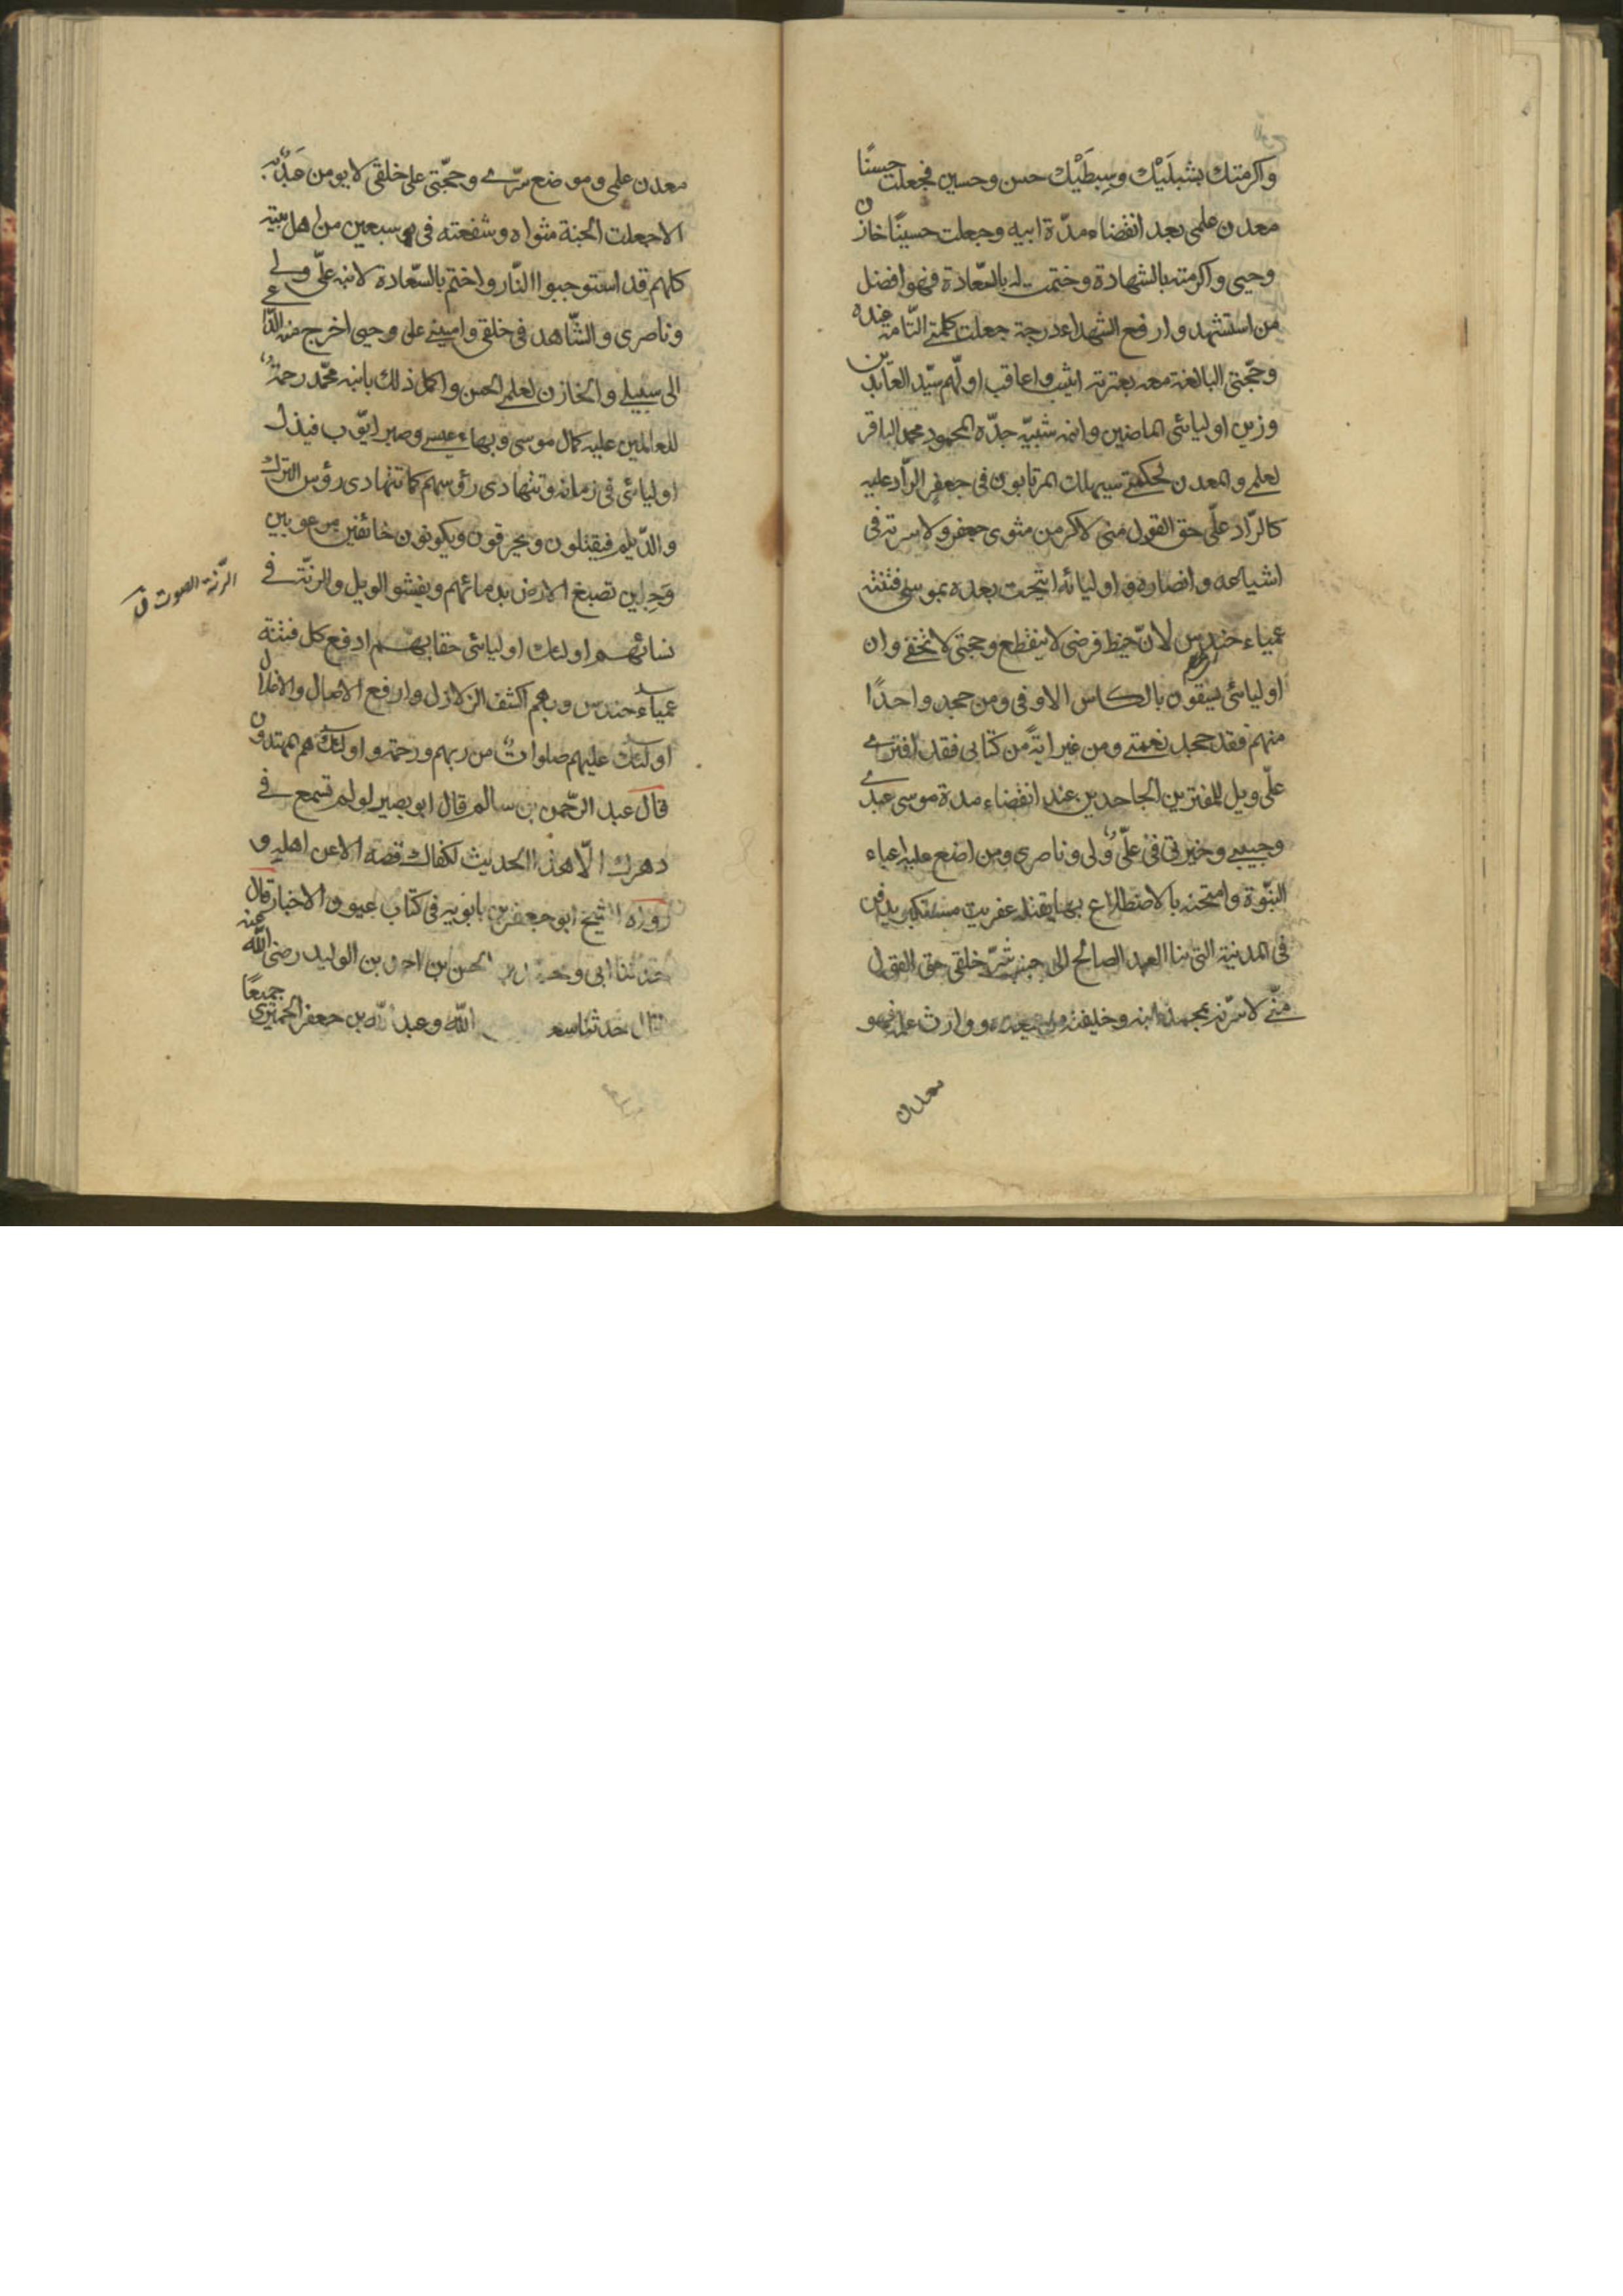 واكرمتك بشبلَيْك وسِبطَيْك حسن وحسين فجعلت حسنًا
معدن علمي بعد انقضاء مدّة ابيه وجعلت حسينًا خازن
وحيي واكرمته بالشهادة وختمت له بالسّعادة فهو افضل
من استشهد وارفع الشهداء درجة جعلت كلمتي التّامة عنده
وحجّتي البالغة معه بعترته اثيب واعاقب اولّهم سيّد العابدين
وزين اوليائي الماضين وابنه شبيه جدّه المحمود محمد الباقر
لعلمي والمعدن لحكمتي سيهلك المرتابون في جعفر الرّاد عليه
كالرّاد علّي حق القول مني لاكرمن مثوى جعفر ولاسرته في
اشياعه وانصاره واوليائه انتجبت بعده بموسى فتنة
عمياء حندس لانّ خيط فرضي لا ينقطع وحجتي لا تخفى وان
اوليائي يسقون بالكاس الاوفى ومن جحد واحدًا
منهم فقد جحد نعمتي ومن غير ايةً من كتابي فقد افترى
علّي ويل للمفترين الجاحدين عند انقضاء مدة موسى عبدي
وحبيبي وخيرتي في علّي وليي وناصري ومن اضع عليه اعباء
النبّوة وامتحنه بالاضطلاع بها يقتله عفريت مستكبر يدفن
في المدينة التي بناها العبد الصالح الى جنب شرّ خلقي حق القول
منّي لاسرّنه بمحمد ابنه وخليفته من بعده ووارث علمه فهو
معدن
معدن علمي وموضع سرّي وحجّتي على خلقي لا يومن عبدٌ به
الا جعلت الجنة مثواه وشفعته في سبعين من اهل بيته
كلهم قد استوجبوا النّار واختم بالسّعادة لابنه علّي وليي
وناصري والشّاهد في خلقي واميني على وحيي اخرج منه الدّاعي
الى سبيلي والخازن لعلمي الحسن واكمل ذلك بابنه محمّد رحمةً
للعالمين عليه كمال موسى وبهاء عيسى وصبر ايّوب فيذل
اوليائي في زمانه وتتهادى رؤسهم كما تتهادى رؤس الترك
والدّيلم فيقتلون ويحرقون ويكونون خائفين مرعوبين
وَجِلين تصبغ الارض بدمائهم ويفشو الويل والرنّة في
الرّنّة الصوت ق
نسائهم اولئك اوليائي حقا بهم ادفع كل فتنة
عمياء حندس وبهم اكشف الزلازل وارفع الاصال والاغلال
اولئك عليهم صلوات من ربهم ورحمة واولئك هم المهتدون
قال عبد الرّحمن بن سالم قال ابو بصير لو لم تسمع في
دهرك الّا هذا الحديث لكفاك فصنه الا عن اهله و
رواه الشيخ ابو جعفر بن بابويه في كتاب عيون الاخبار قال
حدثنا ابي ومحمد بن الحسن بن احمد بن الوليد رضي الله عنه
قال حدثنا سعد الله وعبد الله بن جعفر الحميري جميعًا